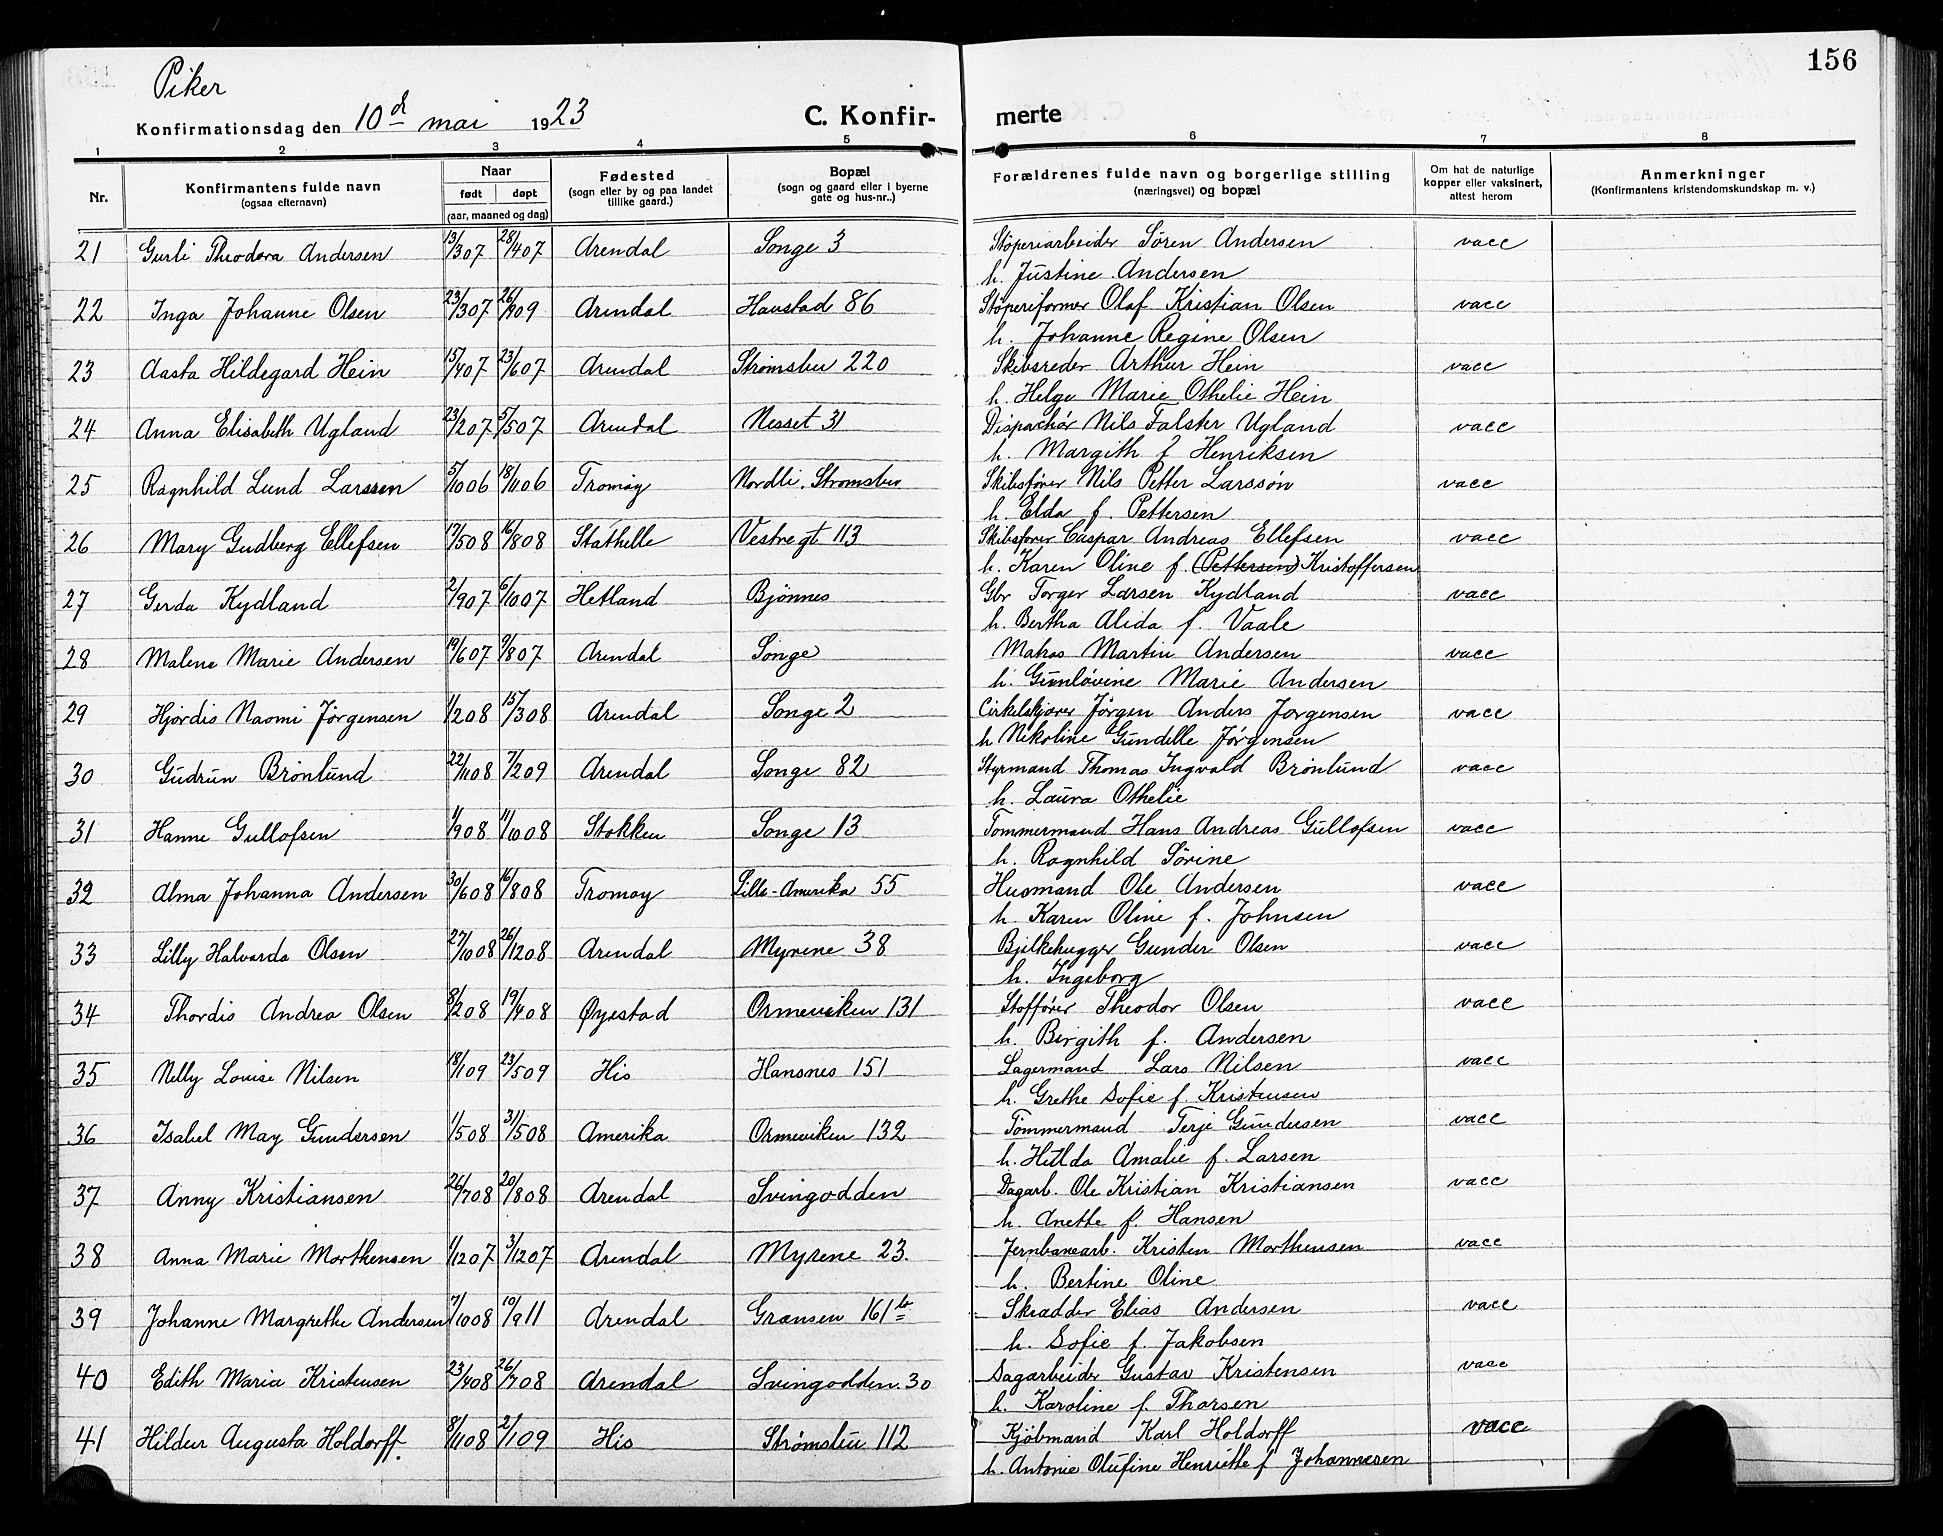 156
Piker
Konfirmationsdag den 10d mai 1923
C. Konfir-
merte
1 2 3 4 5 6 7 8
Nr.
Konfirmantens fulde navn
(ogsaa efternavn)
Naar
født døpt
(aar, maaned og dag)
Fødested
(sogn eller by og paa landet
tillike gaard.)
Bopæl
(sogn og gaard eller i byerne
gate og hus-nr..)
Forældrenes fulde navn og borgerlige stilling
(næringsvei) og bopæl
Om hat de naturlige
kopper eller vaksinert,
attest herom
Anmerkninger
(Konfirmantens kristendomskundskap m. v.)
21 Gurli Theodora Andersen 13/307 28/407 Arendal Songe 3 Støperiarbeider Søren Andersen vacc
h. Justine Andersen
22 Inga Johanne Olsen 23/307 26/909 Arendal Havstad 86 Støperiformer Olaf Kristian Olsen vacc
h. Johanne Regine Olsen
23 Aasta Hildegard Hein 15/407 23/607 Arendal Strømsbu 220 Skibsreder Arthur Hein vacc
h. Helge Marie Othelie Hein
24 Anna Elisabeth Ugland 23/207 5/507 Arendal Nesset 31 Dispachør Nils Falster Ugland vacc
h. Margith f Henriksen
25 Ragnhild Lund Larssen 5/1006 18/1106 Tromøy Nordli. Strømsbu Skibsfører Nils Petter Larssøn vacc
h. Elda f. Pettersen
26 Mary Gudberg Ellefsen 17/508 16/808 Stathelle Vestregt 113 Skibsfører Caspar Andreas Ellefsen vacc
h. Karen Oline f. (Pettersen) Kristoffersen
27 Gerda Kydland 2/907 6/1007 Hetland Bjønnes Gbr Torger Larsen Kydland vacc
h. Bertha Alida f. Vaale
28 Malene Marie Andersen 19/607 9/807 Arendal Songe Matros Martin Andersen vacc
h. Gunløvine Marie Andersen
29 Hjørdis Naomi Jørgensen 1/208 15/308 Arendal Songe 2 Cirkelskjærer Jørgen Anders Jørgensen vacc
h Nikoline Gundelle Jørgensen
30 Gudrun Brönlund 22/1108 7/209 Arendal Songe 82 Styrmand Thomas Ingvald Brönlund vacc
h. Laura Othelie
31 Hanne Gullofsen 1/908 11/1008 Stokken Songe 13 Tømmermand Hans Andreas Gullofsen vacc
h. Ragnhild Sørine
32 Alma Johanna Andersen 30/608 16/808 Tromøy Lille-Amerika 55 Husmand Ole Andersen vacc
h. Karen Oline f. Johnsen
33 Lilly Halvarda Olsen 27/1008 26/1208 Arendal Myrene 38 Bjelkehugger Gunder Olsen vacc
h. Ingeborg
34 Thordis Andrea Olsen 8/208 19/408 Øyestad Ormeviken 131 Theodor Olsen vacc
h. Birgith f. Andersen
35 Nelly Louise Nilsen 18/109 23/509 His Hansnes 151 Lagermand Lars Nilsen vacc
h. Grethe Sofie f. Kristensen
36 Isabel May Gundersen 1/508 31/508 Amerika Ormeviken 132 Tømmermand Terje Gundersen vacc
h. Hilda Amalie f. Larsen
37 Anny Kristiansen 26/708 20/808 Arendal Svingodden Dagarb. Ole Kristian Kristiansen vacc
h. Anette f. Hansen
38 Anna Marie Morthensen 1/1207 3/1207 Arendal Myrene 23. Jernbanearb. Kristen Morthensen vacc
h. Bertine Oline
39 Johanne Margrethe Andersen 7/1008 10/911 Arendal Grænsen 161b Skrædder Elias Andersen vacc
h. Sofie f. Jakobsen
40 Edith Maria Kristensen 23/408 26/708 Arendal Svingodden. 30 Sagarbeider Gustav Kristensen vacc
h. Karoline f. Thorsen
41 Hildur Augusta Holdorff. 8/1108 2/109 His Strømsbu 112 Kjøbmand Karl Holdorff vacc
h. Antonie Olufine Henriette f Johannesen